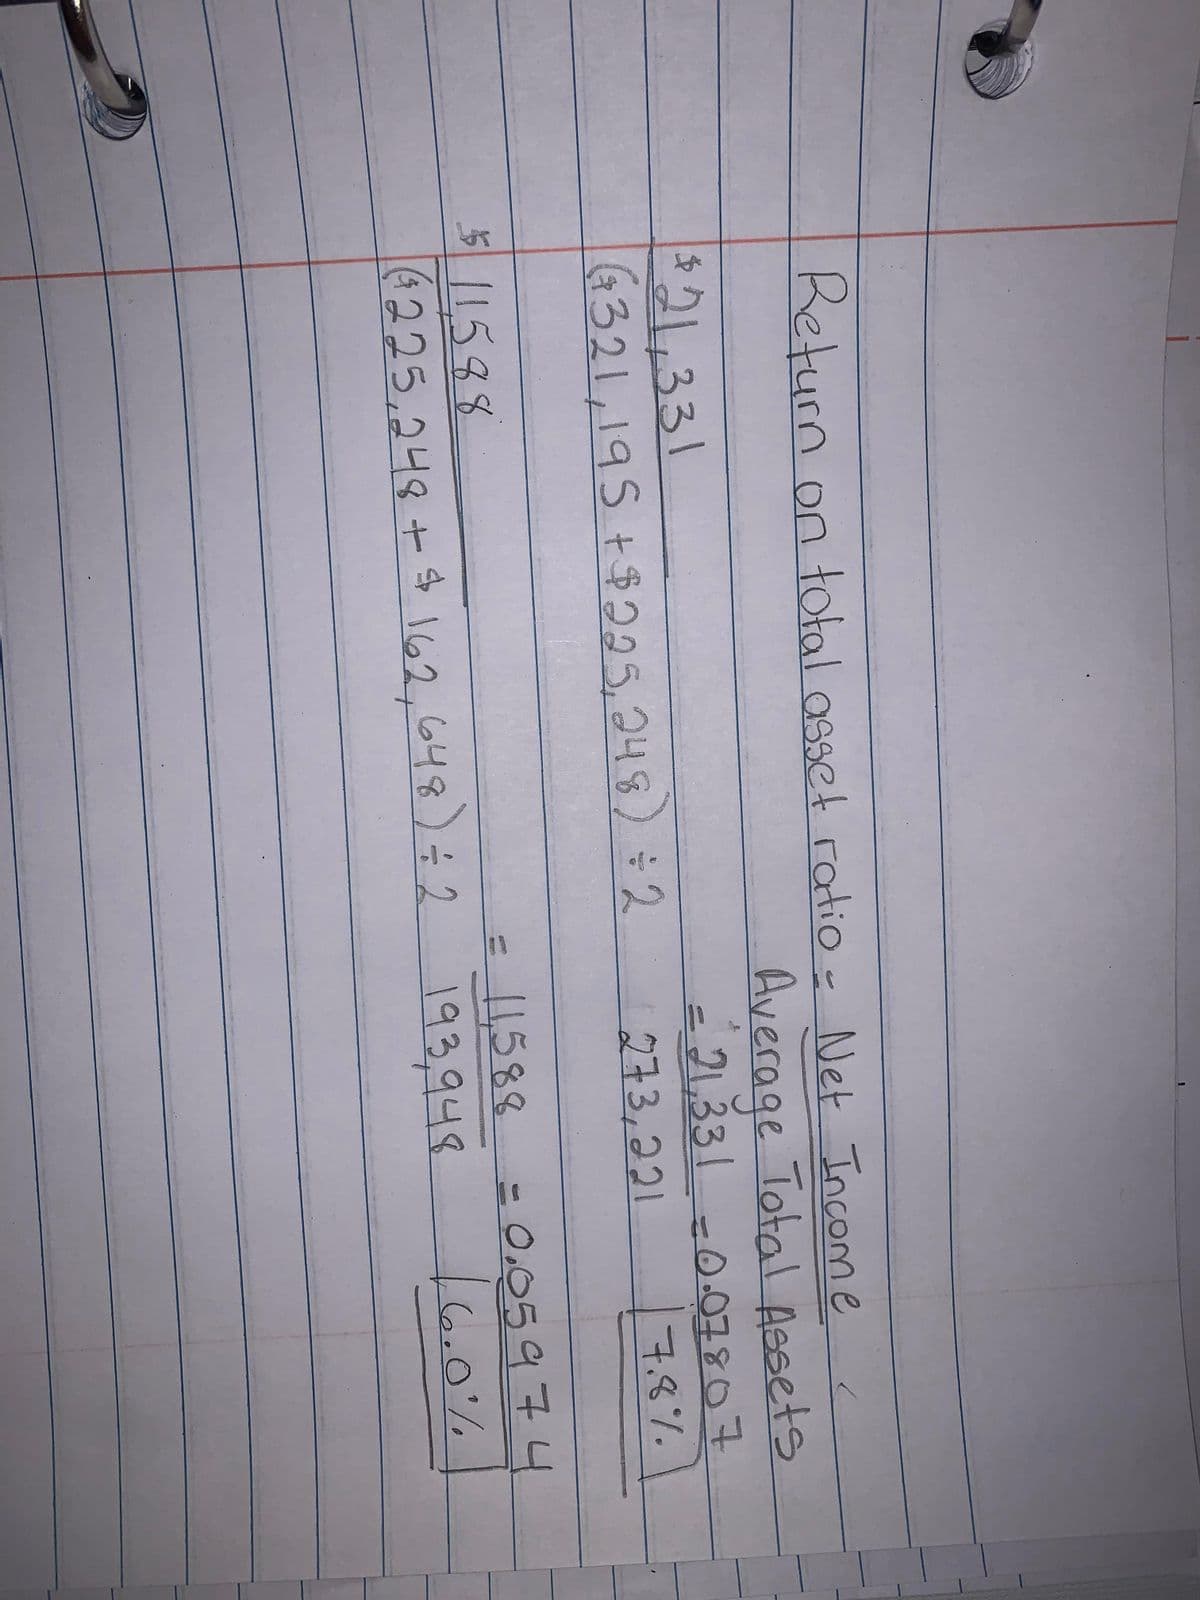 Return on total asset ratio = Net Income
Average Total Assets
$21,331 = 21,331 = 0.07807
($321,195 + $225,248) ÷ 2 273,221 7.8%
$ 11,588 = 11,588 = 0.05974
($225,248 + $ 162,648) ÷ 2 193,948 6.0%